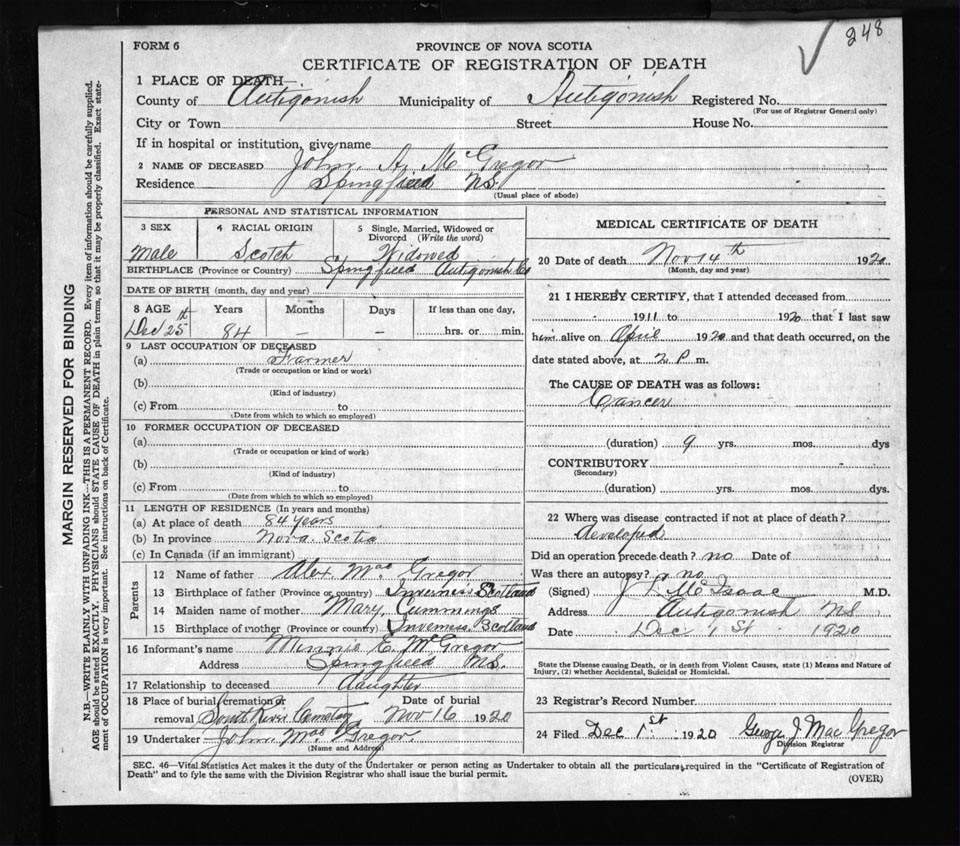 248
FORM 6
PROVINCE OF NOVA SCOTIA
CERTIFICATE OF REGISTRATION OF DEATH
1 PLACE OF DEATH
County of Antigonish Municipality of Antigonish Registered No.
(For use of Registrar General only)
City or Town Street House No.
If in hospital or institution, give name
2 NAME OF DECEASED John A. McGregor
Residence Spingfield NS.
(Usual place of abode)
PERSONAL AND STATISTICAL INFORMATION
3 SEX 4 RACIAL ORIGIN 5 Single, Married, Widowed or Divorced (Write the word)
Male Scotch Widowed
BIRTHPLACE (Province or Country) Spingfield Antigonish Co
DATE OF BIRTH (month, day and year)
8 AGE Years Months Days If less than one day,
Dec 25th 84 – – hrs. or min.
9 LAST OCCUPATION OF DECEASED
(a) Farmer
(Trade or occupation or kind or work)
(b)
(Kind of industry)
(c) From to
(Date from which to which so employed)
10 FORMER OCCUPATION OF DECEASED
(a)
(Trade or occupation or kind or work)
(b)
(Kind of industry)
(c) From to
(Date from which to which so employed)
11 LENGTH OF RESIDENCE (In years and months)
(a) At place of death 84 years
(b) In province Nova Scotia
(c) In Canada (if an immigrant)
Parents
12 Name of father Alex. Mac Gregor
13 Birthplace of father (Province or country) Inverness Scotland
14 Maiden name of mother Mary Cummings
15 Birthplace of mother (Province or country) Inverness. Scotland
16 Informant's name Minnie E. McGregor
Address Spingfield NS.
17 Relationship to deceased daughter
18 Place of burial cremation or Date of burial
removal South River Cemetay Nov 16 1920
19 Undertaker John MacGregor
(Name and Address)
MEDICAL CERTIFICATE OF DEATH
20 Date of death Nov 14th 1920
(Month, day and year)
21 I HEREBY CERTIFY, that I attended deceased from
1911 to 1920 that I last saw
him alive on April 1920 and that death occurred, on the
date stated above, at 2 P m.
The CAUSE OF DEATH was as follows:
Cancer
(duration) 9 yrs. mos. dys
CONTRIBUTORY
(Secondary)
(duration) yrs. mos. dys.
22 Where was disease contracted if not at place of death?
developed
Did an operation precede death? no Date of
Was there an autopsy? no
(Signed) J. L. McIsaac M.D.
Address Antigonish NS
Date Dec 1st 1920
State the Disease causing Death, or in death from Violent Causes, state (1) Means and Nature of
Injury, (2) whether Accidental, Suicidal or Homicidal.
23 Registrar's Record Number
24 Filed Dec 1st 1920 George J. MacGregor
Division Registrar
SEC. 46—Vital Statistics Act makes it the duty of the Undertaker or person acting as Undertaker to obtain all the particulars required in the "Certificate of Registration of
Death" and to fyle the same with the Division Registrar who shall issue the burial permit.
(OVER)
MARGIN RESERVED FOR BINDING
N.B.—WRITE PLAINLY WITH UNFADING INK—THIS IS A PERMANENT RECORD. Every item of information should be carefully supplied.
AGE should be stated EXACTLY. PHYSICIANS should STATE CAUSE OF DEATH in plain terms, so that it may be properly classified. Exact state-
ment of OCCUPATION is very important. See instructions on back of Certificate.